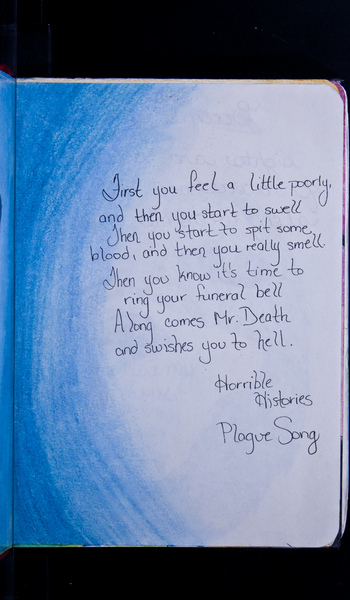 First you feel a little poorly,
and then you start to swell
Then you start to spit some
blood, and then you really smell.
Then you know it's time to
ring your funeral bell
Along comes Mr. Death
and swishes you to hell.
Horrible
Histories
Plague Song